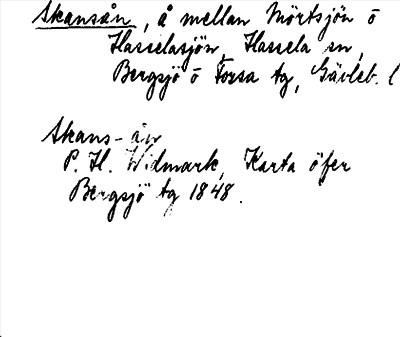 Skansån, å mellan Mörtsjön o
Hasselasjön, Hassela sn,
Bergsjö o Forsa tg, Gävleb. l
Skans-ån
P. H. Widmark, Karta öfver
Bergsjö tg 1848.